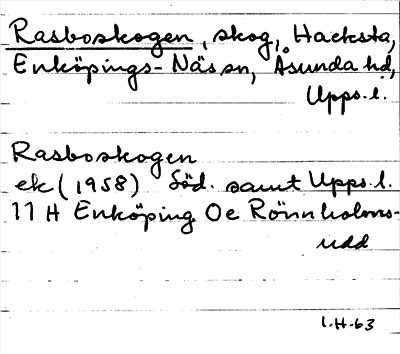 Rasboskogen, skog, Hacksta,
Enköpings-Näs sn, Åsunda hd,
Upps. l.
Rasboskogen
ek (1958) Söd. samt Upps. l.
11 H Enköping 0e Rönnholms-
udd
1.H-63